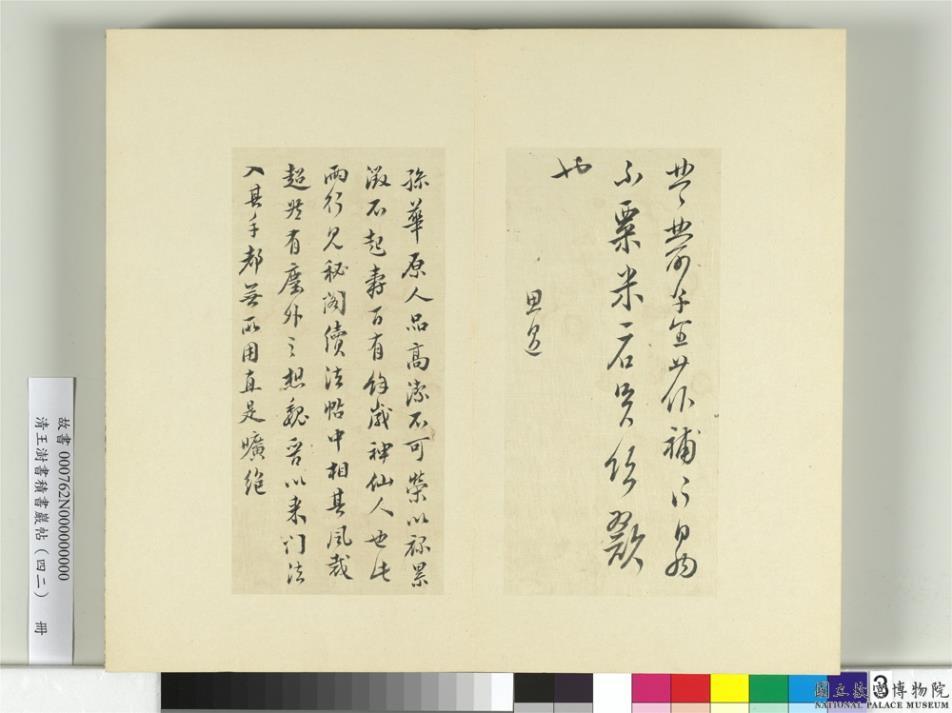 不粟米一石
也
思邈
孫華原人品高潔不可榮以祿累
徵不起壽百有餘歲神仙人也此
兩行見秘閣續法帖中相其風裁
超然有塵外之想魏晉以来門法
入其手都無所用真是曠絕
故書 000762N000000000
清王澍書積書巖帖（四二） 冊
3
國立故宮博物院
NATIONAL PALACE MUSEUM